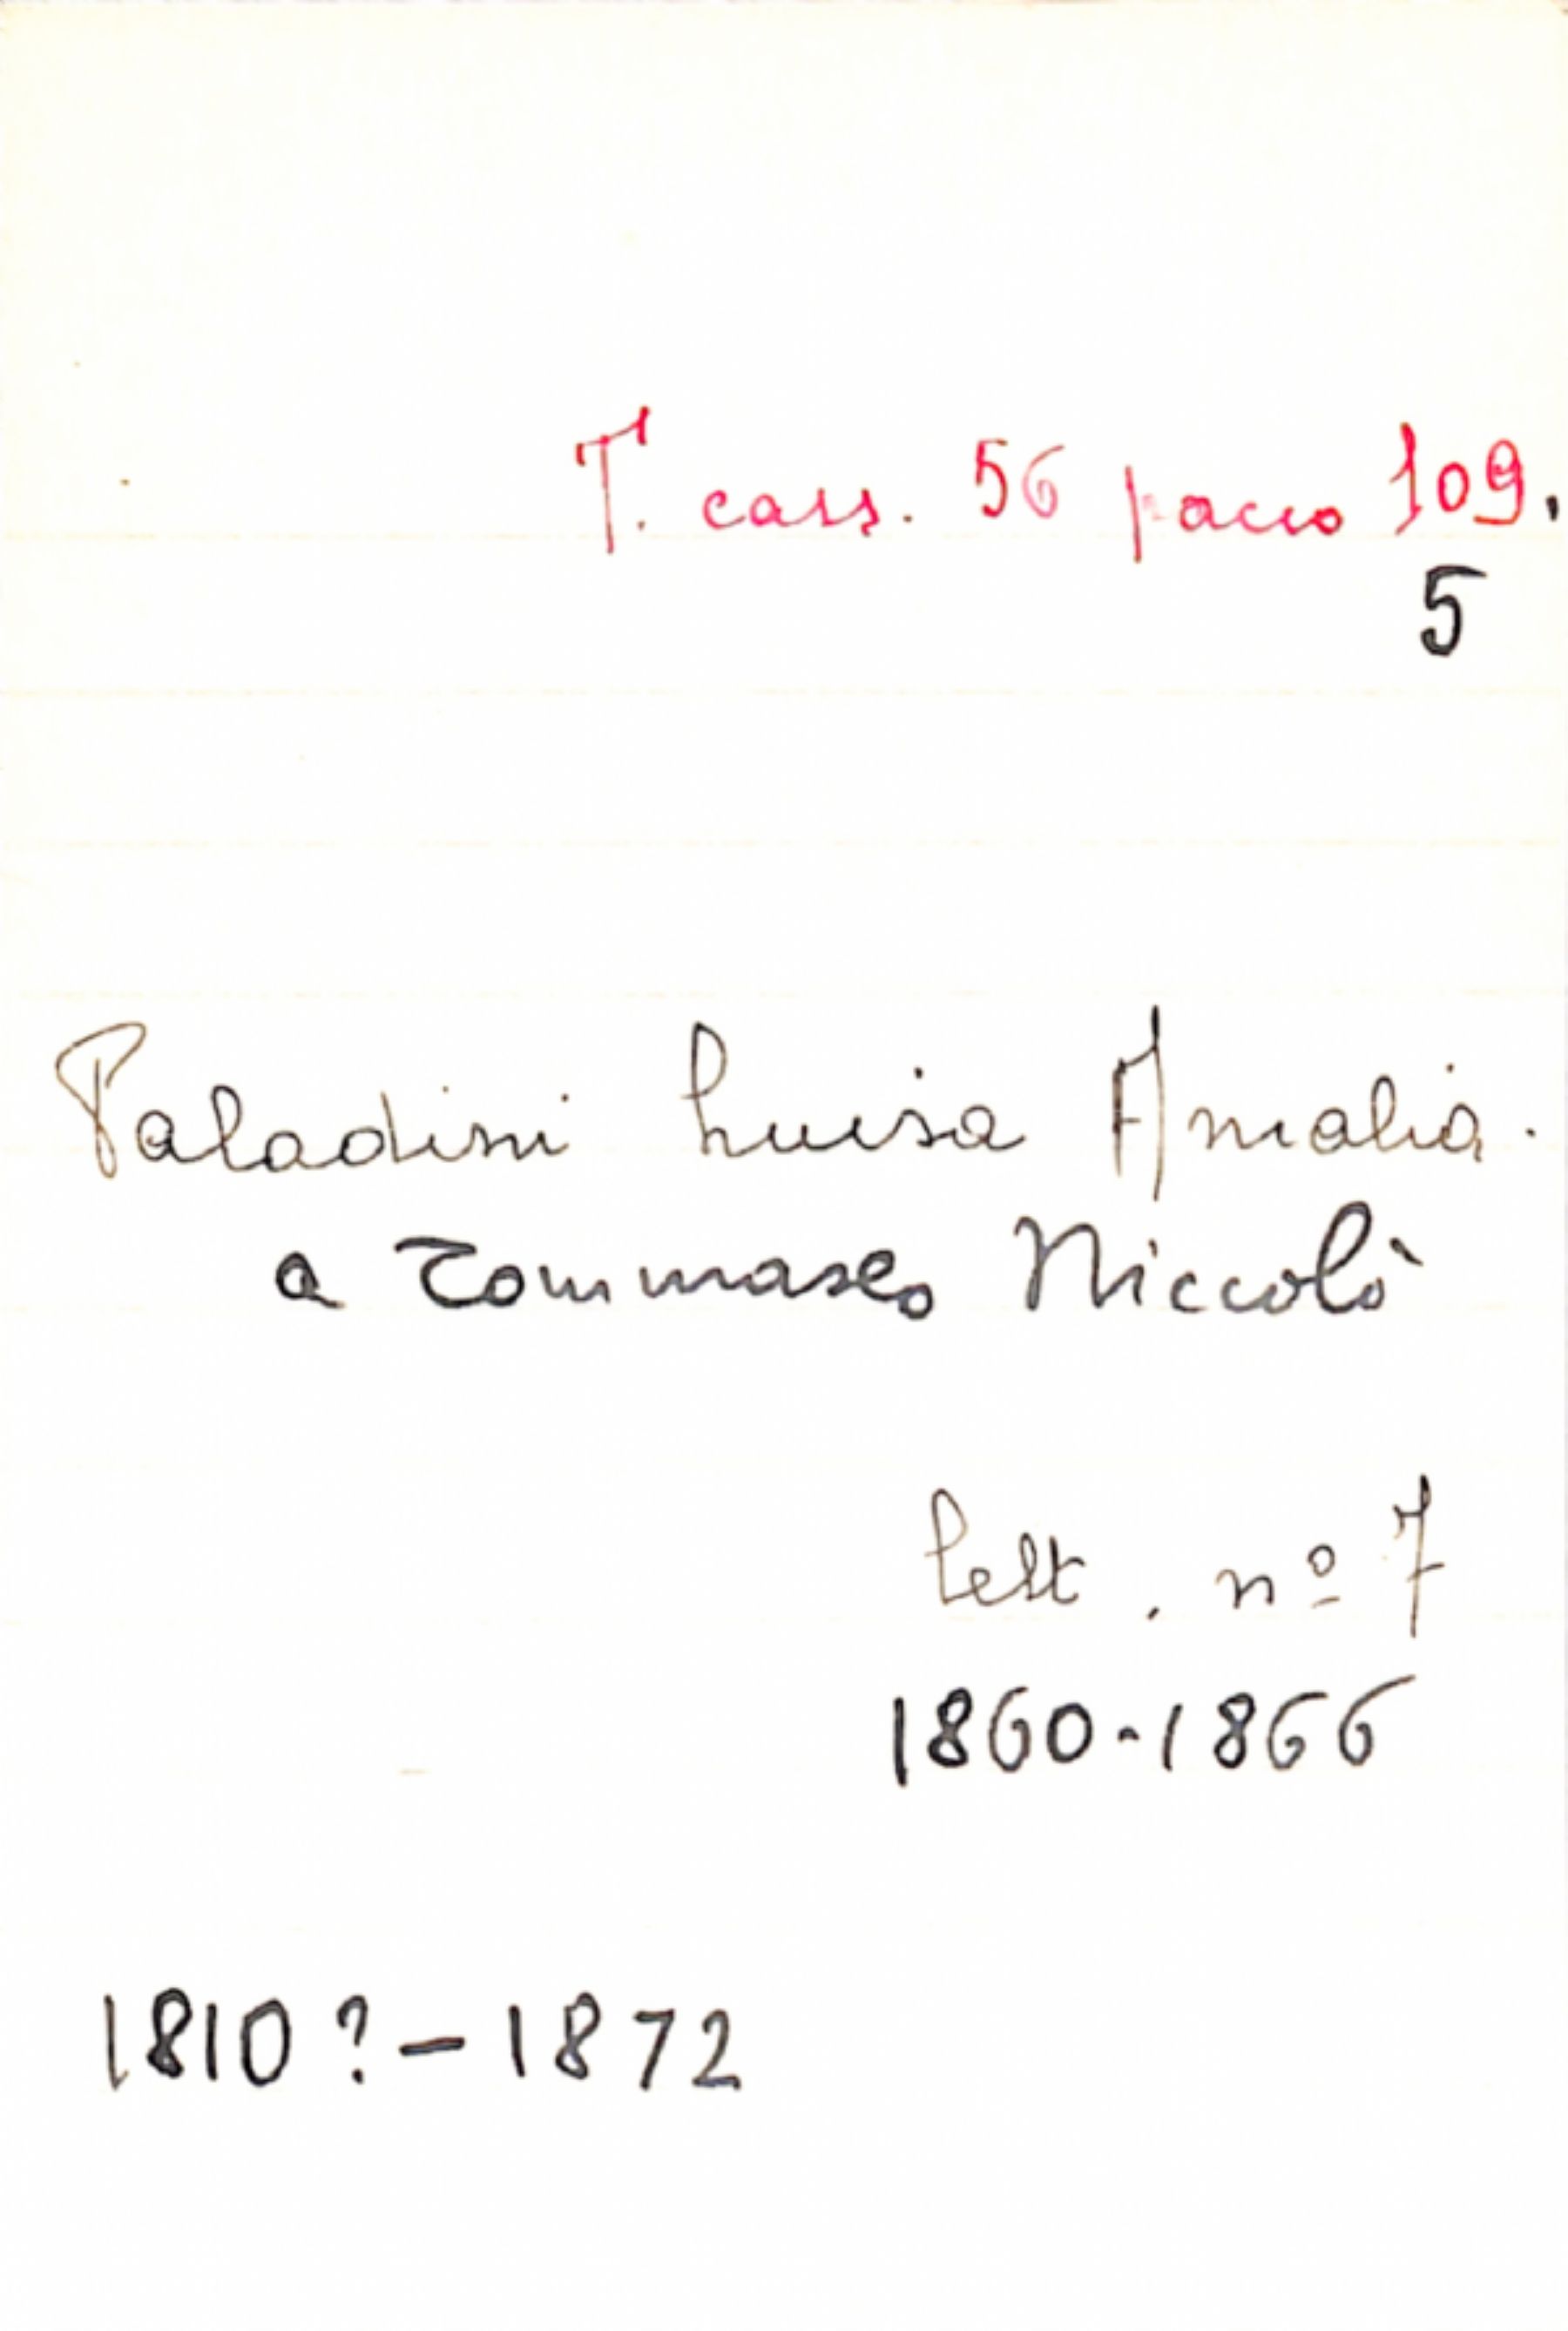 T. cass. 56 pacco 109.
5
Paladini Luisa Amalia.
a Tommaseo Niccolò
lett. nº 7
1860-1866
1810?-1872